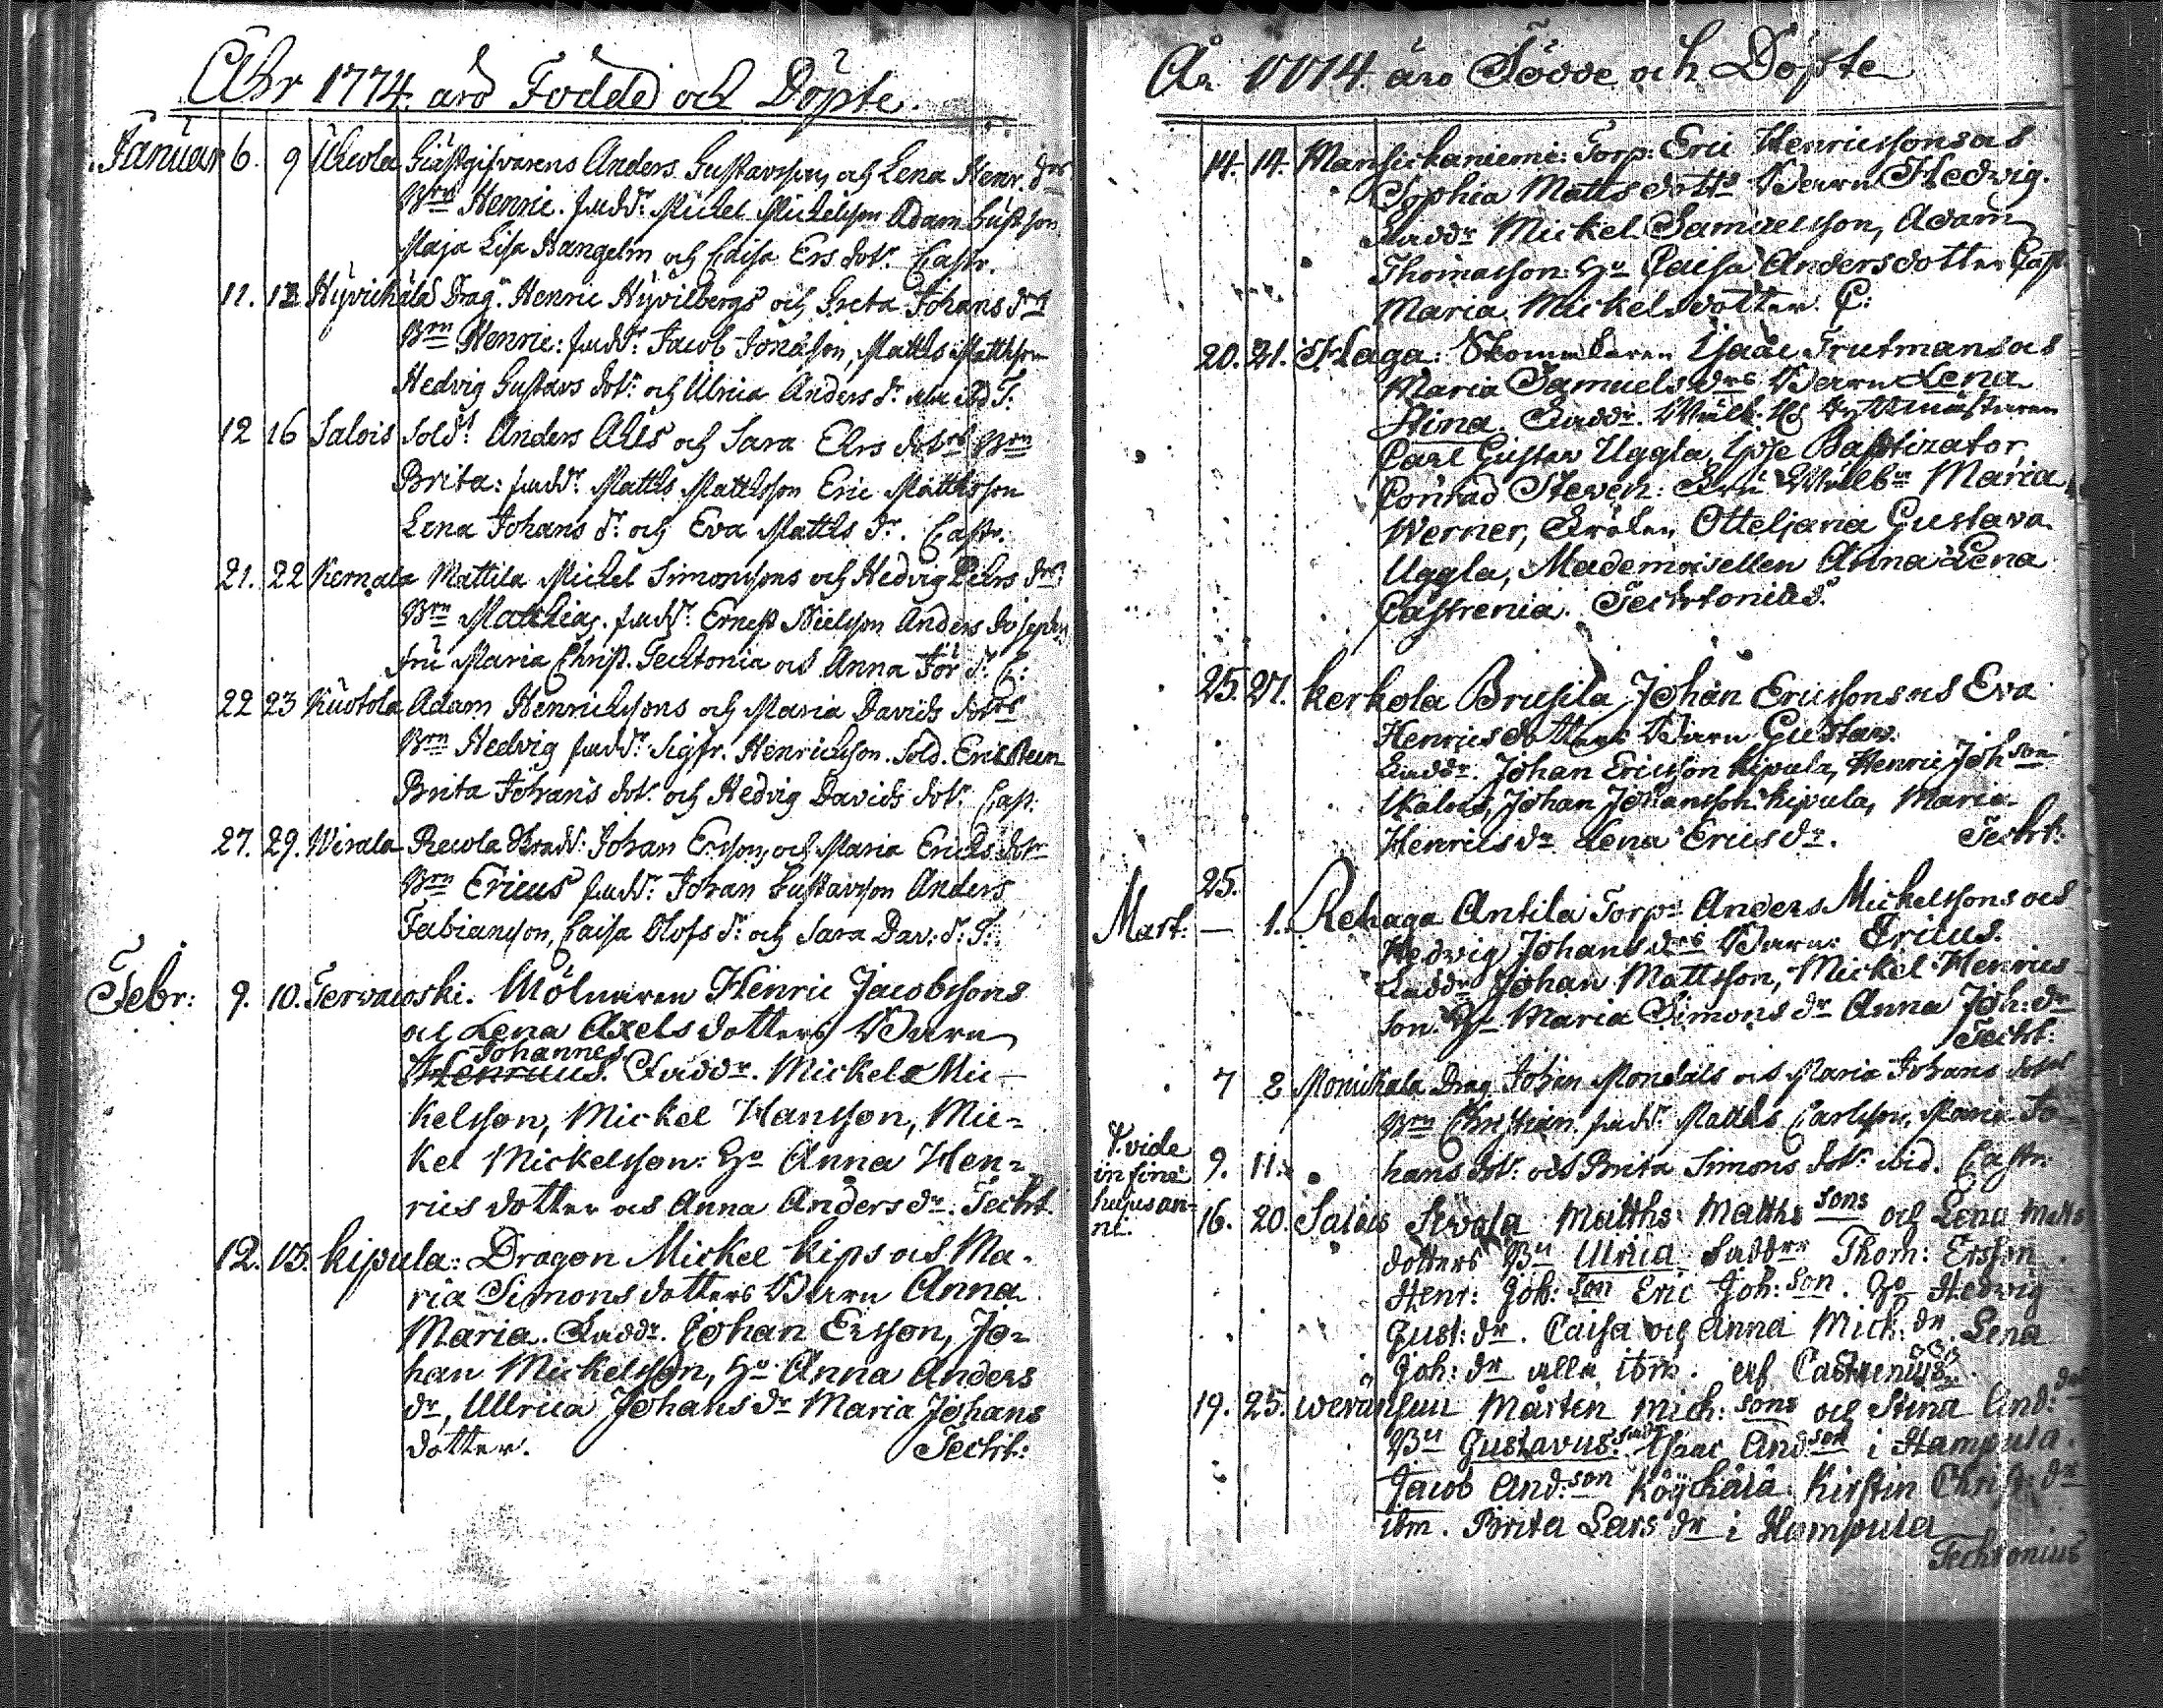 Åhr 1774 äro Födde och Döpte.
Januar 6. 9 Uhkola Giästgifvarens Anders Gustavsson och Lena Henr. drs
Brn Henric. fadd.r Michel Michelsson Adam Gustson
Maja Lisa Hangelin och Caisa Ers dotr. Castr.
11. 12. Hyvichälä Drag.n Henric Hyvilbergs och Greta Johans drs
Brn Henric: fadd.r Jacob Jonasson, Matths Matthsson
Hedvig Gustavs dotr. och Ulrica Anders dr. T:
12 16 Salois Sold.t Anders Alls och Sara Ers dotrs Brn
Brita: fadd.r Matths Matthsson Eric Matthsson
Lena Johans dr. och Eva Matths dr. Castr.
21. 22 Kernala Mattila Michel Simonssons och Hedvig drs
Brn Matthias. fadd.r Ernst Nielsson Anders Josephss
fru Maria Christ. Techtonia och Anna Jör dr. C:
22 23 Kuotola Adam Henrichssons och Maria Davids dotrs
Brn Hedvig fadd.r Sigfr. Henrichsson. Sold. Eric
Brita Johans dotr. och Hedvig Davids dotr. Cast.
27. 29. Wirala Recola Johan Ersson, och Maria Erichs dotr
Brn Ericus fadd.r Johan Gustavsson Anders
Fabiansson, Caisa Olofs dr. och Sara Dav: dr. T:
Febr: 9. 10. Tervacoski. Mölnaren Henric Jacobssons
och Lena Axelsdotters Barn
Johannes
Henricus. Faddr. Mickel Mic-
kelsson, Mickel Hansson, Mic=
kel Mickelsson: Hu Anna Hen=
rics dotter och Anna Anders dr: Techt.
12. 13. Kipula: Dragon Mickel Kips och Ma-
ria Simons dotters Barn Anna
Maria. Faddr. Johan Ersson, Jo=
han Mickelsson, Hu Anna Anders
dr, Ullrica Johans dr Maria Johans
dotter. Techt:
År 1774 äro Födde och Döpte
14. 14. Mansickaniemi: Torp: Eric Henricssons och
Sophia Matts dotts Barn Hedvig.
Faddr Mickel Samuelsson, Adam
Thomasson: Hu Caisa Andersdotter Cap.
Maria Mickelsdotter. C:
20. 21. Haga: Skomakaren Isaac Trutmans och
Maria Samuels drs Barn Lena
Stina. Faddr. Wälb: H: Ryttmästaren
Carl Gustav Uggla, Baptizator,
Conrad Steven: Fru Wälbn Maria
Werner, Fröken Otteljana Gustava
Uggla, Mademoisellen Anna Lena
Castrenia. Techtonius.
25. 27. Kerkola Brusila Johan Ericssons och Eva
Henricsdotters Barn Gustav.
Faddr. Johan Ericsson Kipula, Henric Johson
Johan Johansson Kipula, Maria
Henrics dr Lena Erics dr. Techt:
25.
Mart: — 1. Rehaga Antila Torpr Anders Mickelssons och
Hedvig Johans drs Barn: Ericus.
Faddr Johan Mattsson, Mickel Henrics
son. Hu Maria Simons dr Anna Joh: dr
Techt:
7 8 Monickala Drag. Johan Mondals och Maria Johans dotrs
Brn Christian. fadd.r Matths Carlsson, Maria Jo=
V. vide
in fine
hujus an=
ni.
9. 11. hans dotr. och Brita Simons dotr. ibid. Castr.
16. 20. Salois Matths Matths sons och Lena Matts
dotters Bn Ulrica Faddrr Thom: Ersson
Henr: Joh: son Eric Joh: son. Hu Hedwig
Gust: dr. Caisa och Anna Mich: dr Lena
Joh: dr alla ibm. af Castrenius.
19. 25. Mårten Mich: sons och Stina And: drs
Bn Gustavus. fadd Isaac Andson i Hampula.
Jacob And: son Kirstin Christ: dr
ibm. Brita Lars dr i Hampula
Techtonius